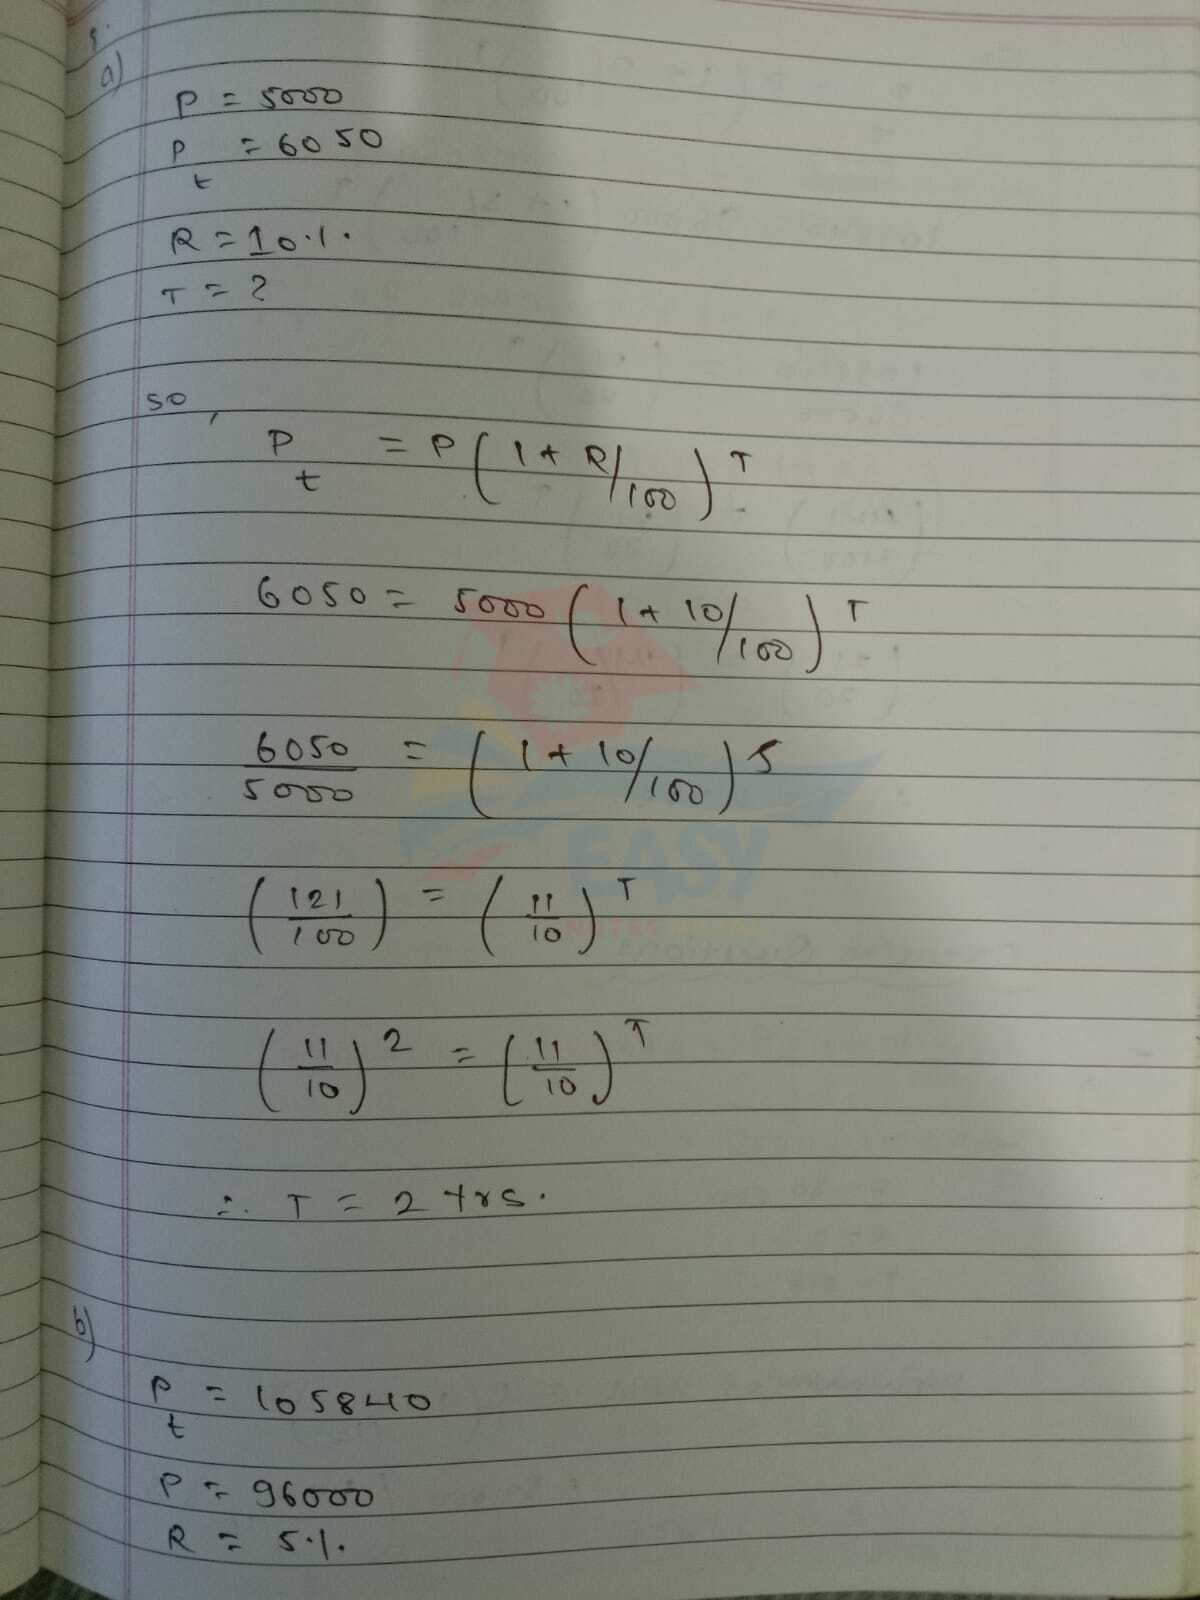 9.
a)
P = 5000
P = 6050
t
R = 10.1.
T = ?
so,
P = P ( 1 + R/100 ) T
t
6050 = 5000 ( 1 + 10/100 ) T
6050/5000 = ( 1 + 10/100 ) 5
( 121/100 ) = ( 11/10 ) T
( 11/10 ) 2 = ( 11/10 ) T
∴ T = 2 yrs.
b)
P = 105840
t
P = 96000
R = 5.1.
EASY
NOTES